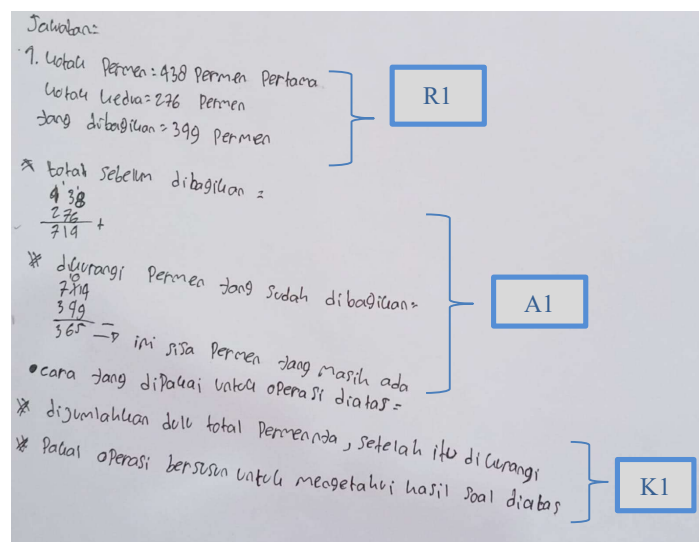 Jawaban=
1. kotak Permen = 438 Permen Pertama
kotak kedua = 276 Permen
yang dibagikan = 349 Permen
R1
* total sebelum dibagikan =
438
276
714 +
* dikurangi Permen yang sudah dibagikan =
714
349
365 → ini sisa Permen yang masih ada
A1
• cara yang dipakai untuk operasi diatas =
* dijumlahkan dulu total Permennya, setelah itu dikurangi
* Pakai operasi bersusun untuk mengetahui hasil soal diatas
K1